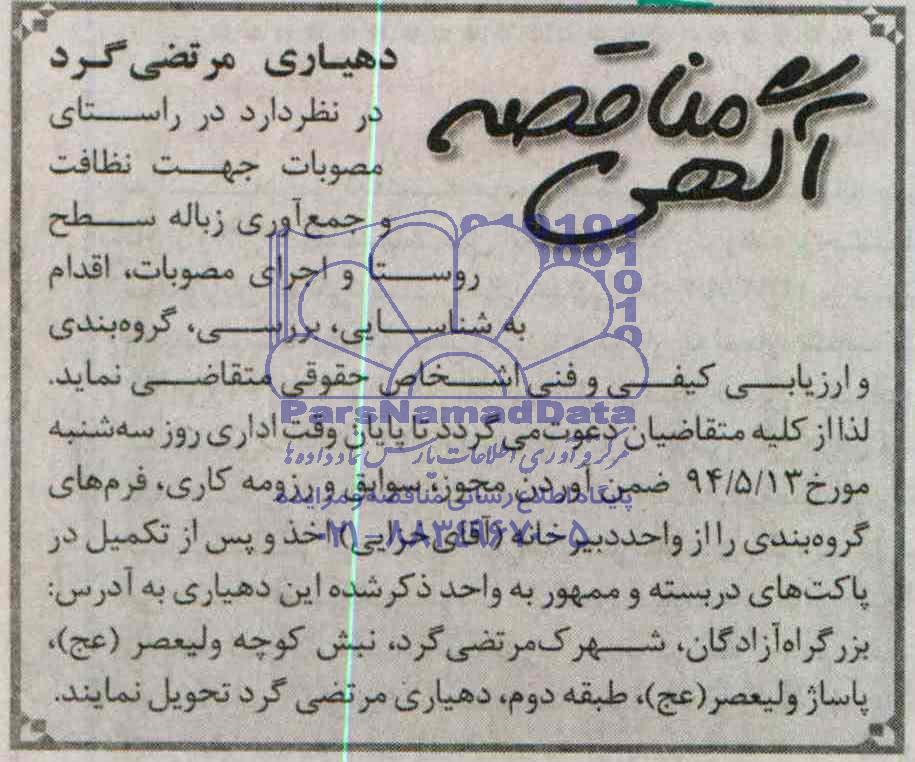 آگهی مناقصه
دهیاری مرتضی گرد
در نظر دارد در راستای
مصوبات جهت نظافت
و جمع‌آوری زباله سطح
روستا و اجرای مصوبات، اقدام
به شناسایی، بررسی، گروه‌بندی
و ارزیابی کیفی و فنی اشخاص حقوقی متقاضی نماید.
لذا از کلیه متقاضیان دعوت می‌گردد تا پایان وقت اداری روز سه‌شنبه
مورخ ۹۴/۵/۱۳ ضمن آوردن مجوز، سوابق و رزومه کاری، فرم‌های
گروه‌بندی را از واحد دبیرخانه (آقای خزایی) اخذ و پس از تکمیل در
پاکت‌های دربسته و ممهور به واحد ذکر شده این دهیاری به آدرس:
بزرگراه آزادگان، شهرک مرتضی گرد، نبش کوچه ولیعصر (عج)،
پاساژ ولیعصر (عج)، طبقه دوم، دهیاری مرتضی گرد تحویل نمایند.
ParsNamadData
مرکز فرآوری اطلاعات پارس نماد داده ها
پایگاه اطلاع رسانی مناقصه و مزایده
۰۲۱-۸۸۳۴۹۶۷۰-۵